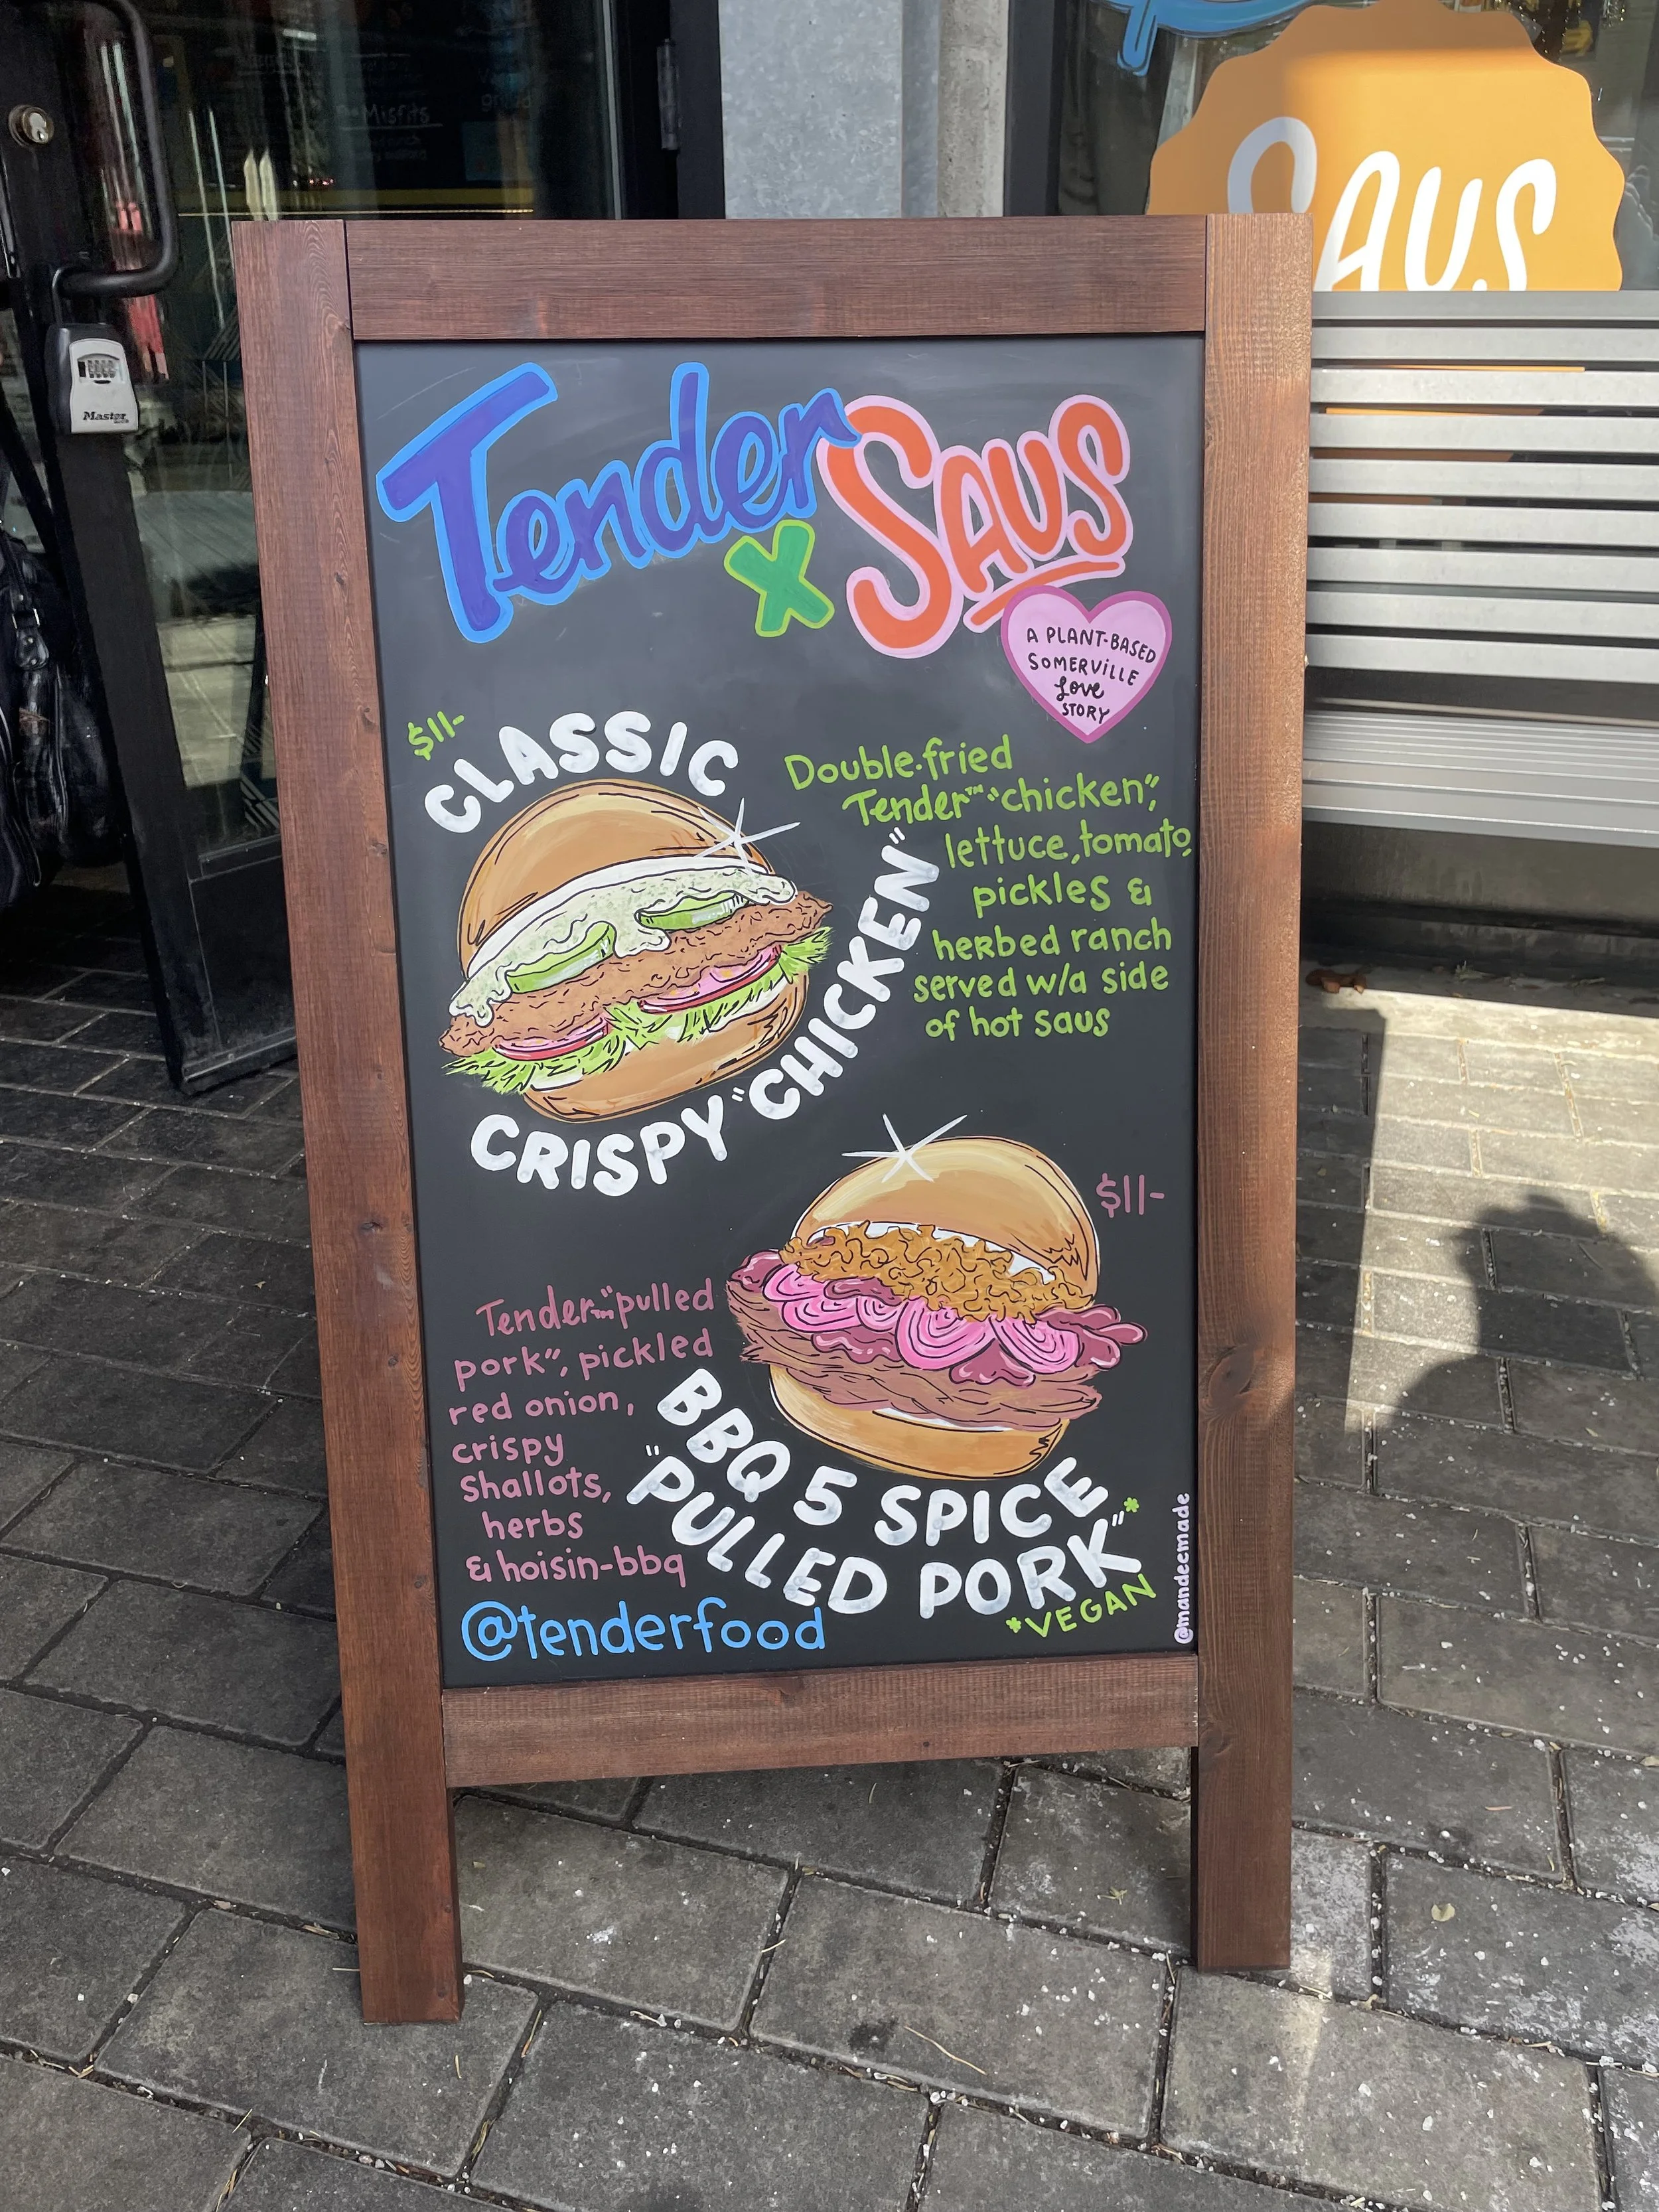 Misfits
SAUS
Master
Tender
x
SAUS
A PLANT-BASED
SOMERVILLE
Love
STORY
$11-
CLASSIC
CRISPY "CHICKEN"
Double-fried
Tender™ "chicken",
lettuce, tomato,
pickles &
herbed ranch
served w/a side
of hot saus
$11-
Tender™ "pulled
pork", pickled
red onion,
crispy
shallots,
herbs
& hoisin-bbq
BBQ 5 SPICE
"PULLED PORK"*
*VEGAN
@tenderfood
@mandeemade